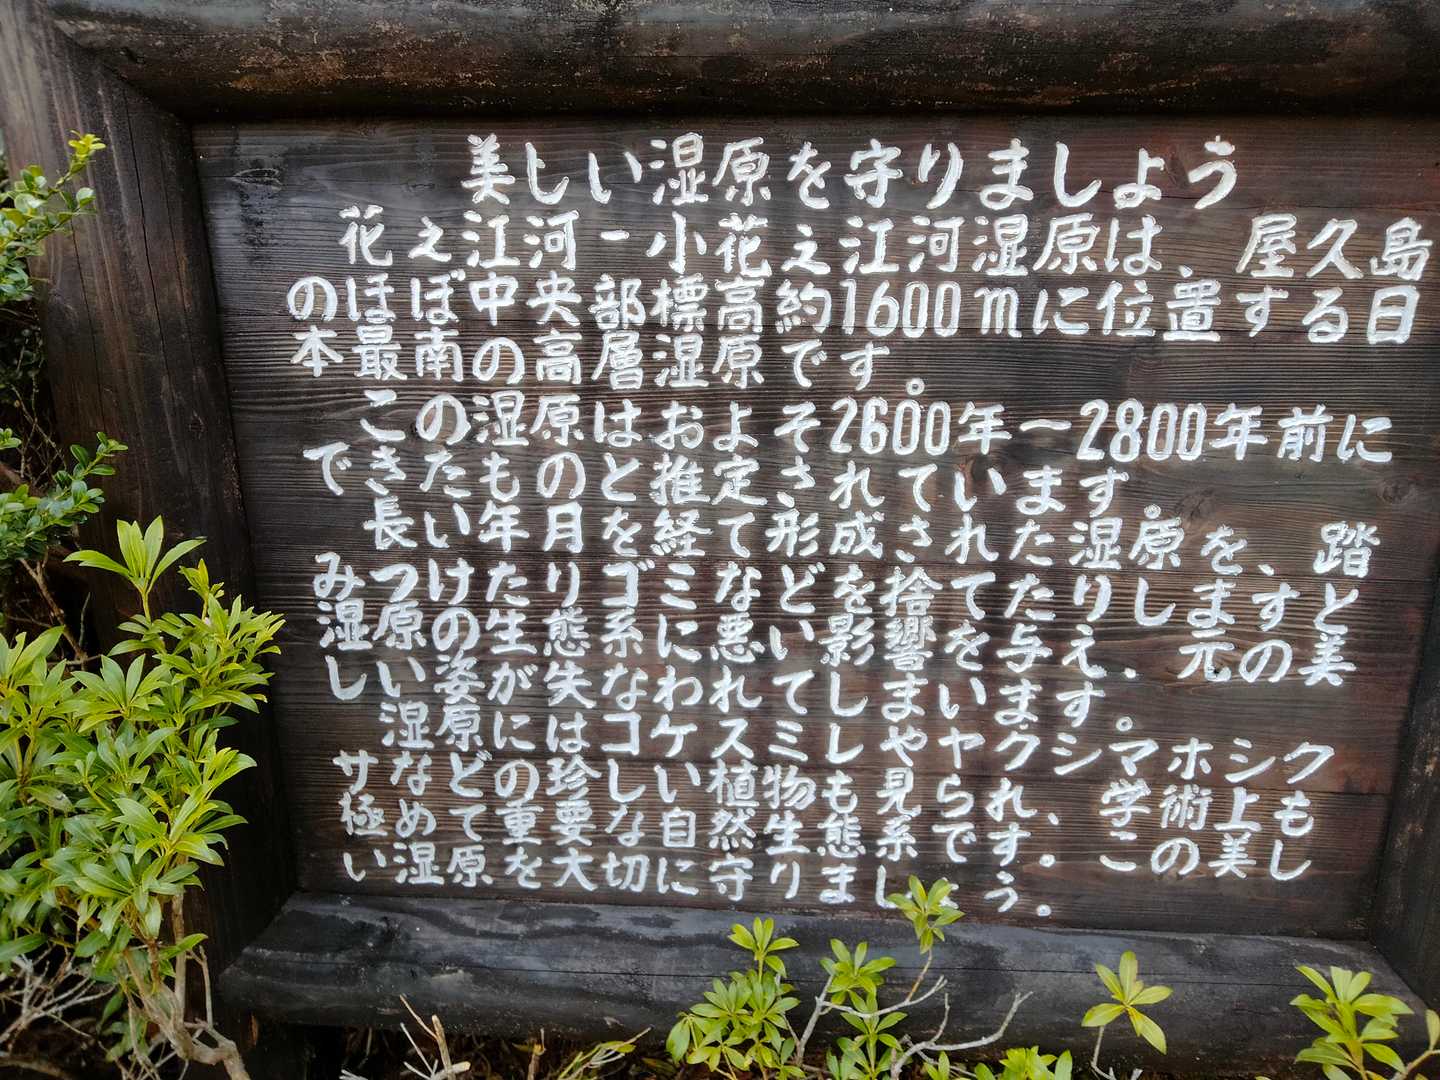 美しい湿原を守りましょう
花之江河ー小花之江河湿原は、屋久島
のほぼ中央部標高約1600mに位置する日
本最南の高層湿原です。
この湿原はおよそ2600年～2800年前に
できたものと推定されています。
長い年月を経て形成された湿原を、踏
みつけたりゴミなどを捨てたりしますと
湿原の生態系に悪い影響を与え、元の美
しい姿が失なわれてしまいます。
湿原にはコケスミレやヤクシマホシク
サなどの珍しい植物も見られ、学術上も
極めて重要な自然生態系です。この美し
い湿原を大切に守りましょう。